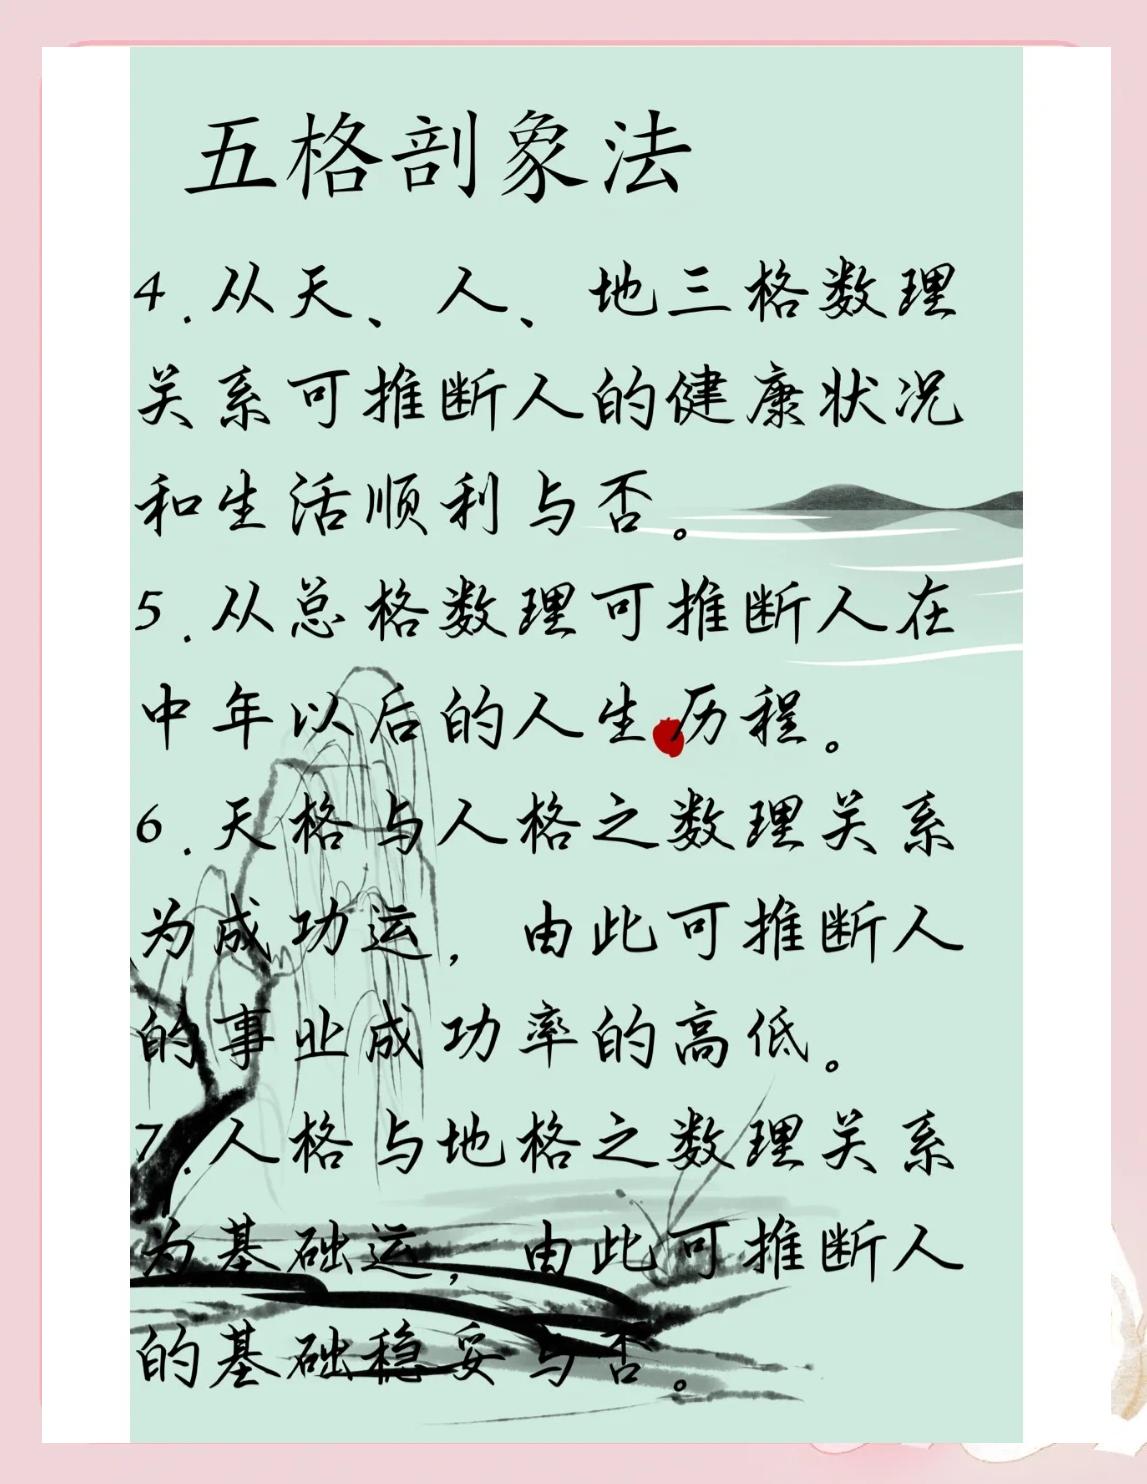 五格剖象法
4.从天、人、地三格数理
关系可推断人的健康状况
和生活顺利与否。
5.从总格数理可推断人在
中年以后的人生历程。
6.天格与人格之数理关系
为成功运，由此可推断人
的事业成功率的高低。
7.人格与地格之数理关系
为基础运，由此可推断人
的基础稳妥与否。